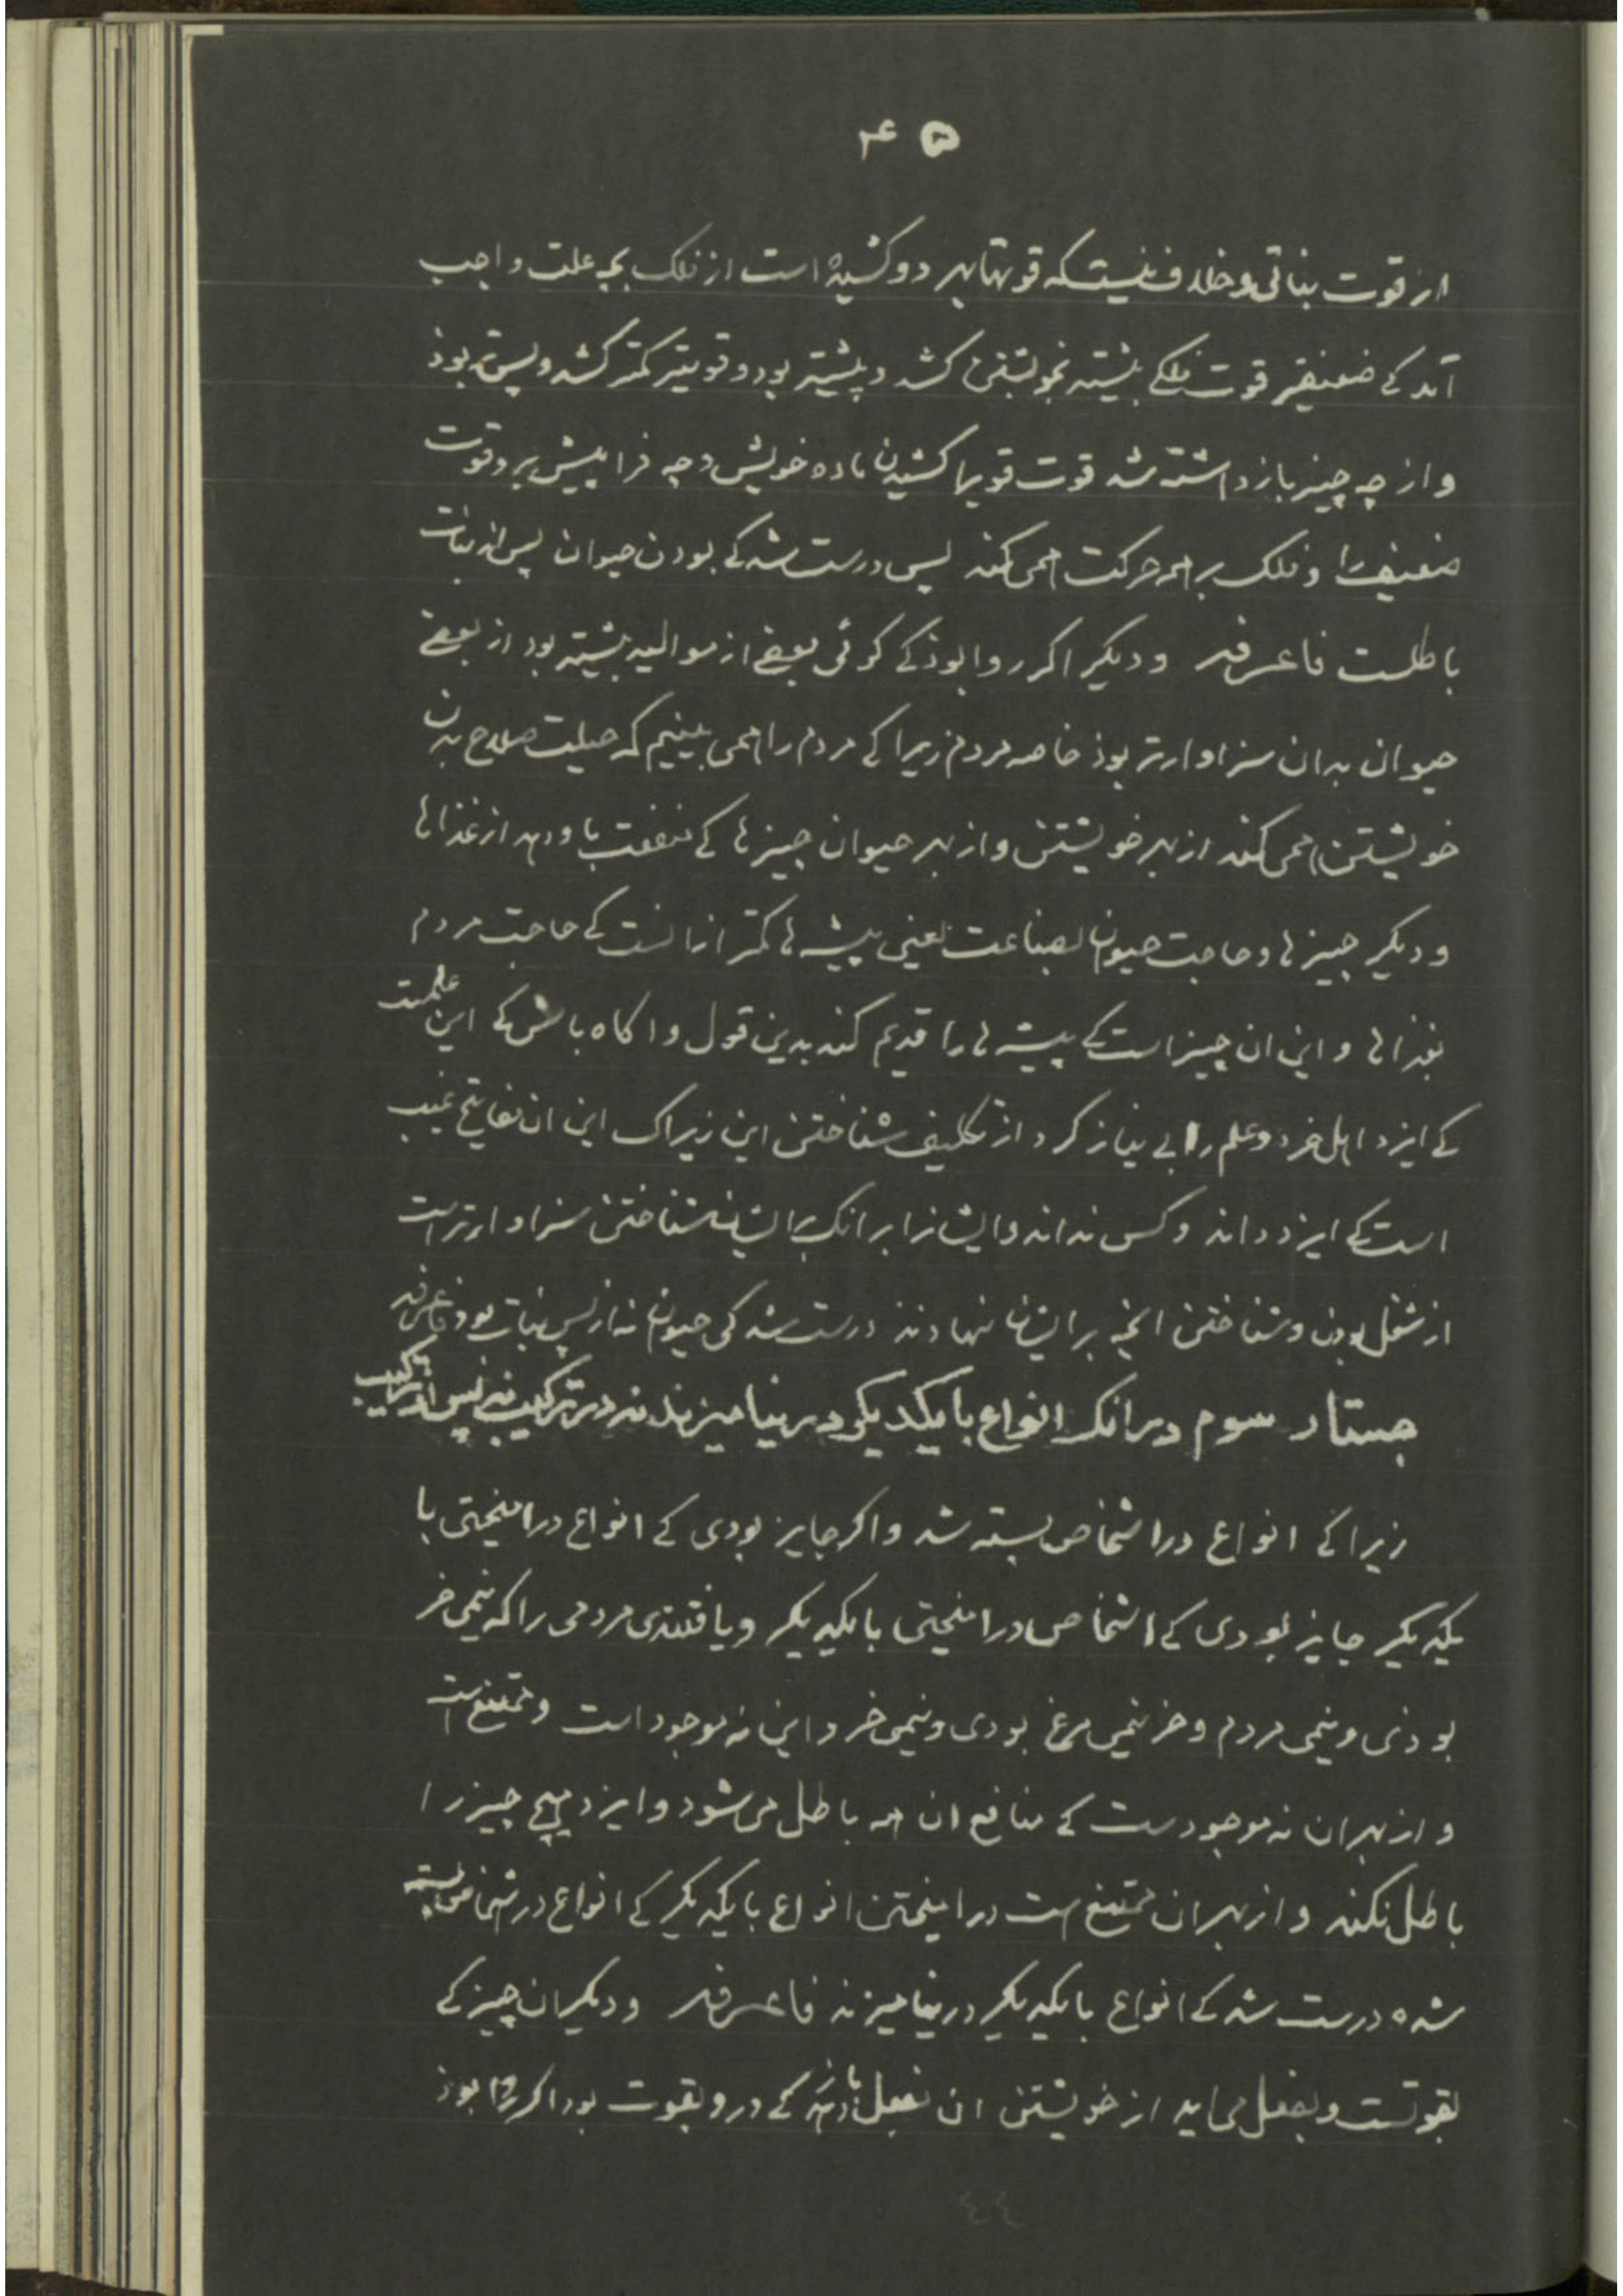 ۴۵
از قوت نباتی و خلاف نیستکه قوتهای هر دو کشیده است از فلک بچه علت واجب
آمد کی ضعیفتر قوت فلکی بیشتر بخویشتن کشد و پیشتر بود و قویتر کمتر کشد و پستر بوذ
و از چه چیز باز داشته شد قوت قویرا کشیدن ماده خویش و چه فرا پیش برد قوت
ضعیف را و فلک بر همه حرکت همی کند پس درست شد کی بودن حیوان پس از نبات
باطلست فاعرفه و دیگر اکر روا بوذ کی کوئی بعضی از موالید بیشتر بود از بعضی
حیوان بدان سزاوارتر بوذ خاصه مردم زیرا کی مردم را همی بینیم که حیلت صلاح بدن
خویشتن همی کند از بهر خویشتن و از بهر حیوان چیزها کی منفعت باو دهد از غذاها
و دیگر چیزها و حاجت حیوان بصناعت یعنی پیشه ها کمتر از انست کی حاجت مردم
بغذاها و این ان چیز است کی پیشه ها را قدیم کند بدین قول و اکاه باش کی این علمیست
کی ایزد اهل خرد و علم را بی نیاز کرد از تکلیف شناختن این زیراک این ان مفاتیح غیب
است کی ایزد داند و کس نداند و ایشانرا برانک بر ایشان شناختن سزاوارتر است
از شغل بودن و شناختن انچه بر ایشان نهادند درست شد کی حیوان نه از پس نبات بود فاعرفه
جستار سوم درانک انواع بایکدیکر درنیامیزند نه در ترکیب نه پس از ترکیب
زیرا کی انواع در اشخاص بسته شد و اکر جایز بودی کی انواع در امیختی با
یکدیکر جایز بودی کی اشخاص در امیختی بایکدیکر و یافتندی مردمی را که نیمی خر
بوذی و نیمی مردم و خر نیمی مرغ بودی و نیمی خر و این نه موجود است و ممتنع است
و از بهر ان نه موجودست کی منافع ان همه باطل می شود و ایزد هیچ چیز را
باطل نکند و از بهر ان ممتنع است در امیختن انواع بایکدیکر کی انواع در اشخاص بسته
شده درست شد کی انواع بایکدیکر درنیامیزند فاعرفه و دیگر ان چیز کی
بقوتست و بفعل می اید از خویشتن ان بفعل باز دهد کی درو بقوت بود اکر روا بوذ